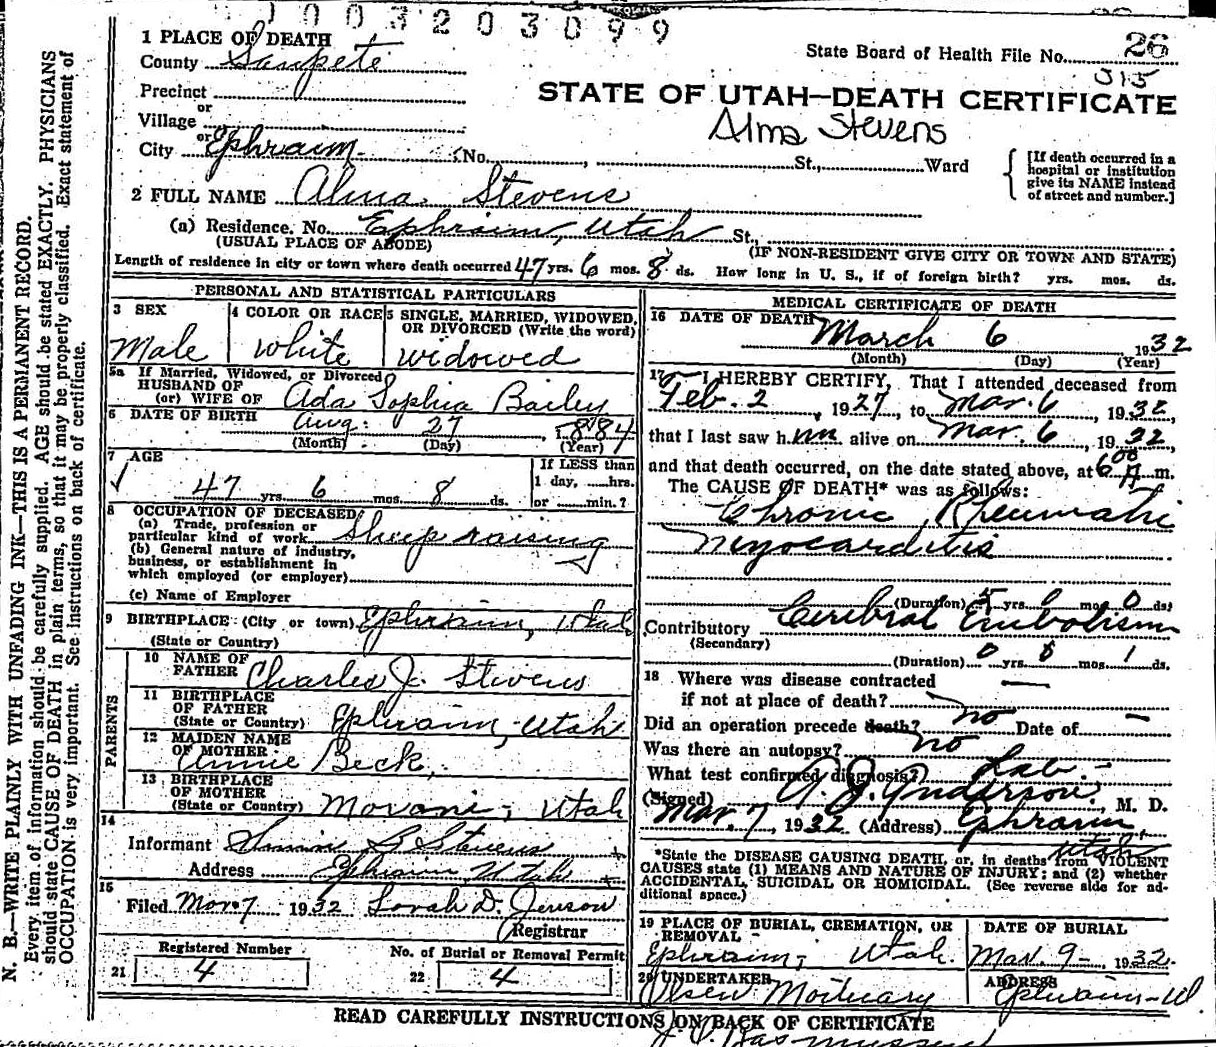 1003203099
1 PLACE OF DEATH
County Sanpete
State Board of Health File No. 26
315
Precinct
or
Village
or
City Ephraim (No. , St., Ward
STATE OF UTAH—DEATH CERTIFICATE
Alma Stevens
[If death occurred in a
hospital or institution
give its NAME instead
of street and number.]
2 FULL NAME Alma Stevens
(a) Residence. No. Ephraim, Utah St.,
(USUAL PLACE OF ABODE) (IF NON-RESIDENT GIVE CITY OR TOWN AND STATE)
Length of residence in city or town where death occurred 47 yrs. 6 mos. 8 ds. How long in U. S., if of foreign birth? yrs. mos. ds.
PERSONAL AND STATISTICAL PARTICULARS
3 SEX
Male
4 COLOR OR RACE
White
5 SINGLE, MARRIED, WIDOWED,
OR DIVORCED (Write the word)
Widowed
5a If Married, Widowed, or Divorced
HUSBAND OF
(or) WIFE OF Ada Sophia Bailey
6 DATE OF BIRTH Aug. 27, 1884
(Month) (Day) (Year)
7 AGE
47 yrs. 6 mos. 8 ds.
If LESS than
1 day, hrs.
or min.?
8 OCCUPATION OF DECEASED
(a) Trade, profession or
particular kind of work Sheep raising
(b) General nature of industry,
business, or establishment in
which employed (or employer)
(c) Name of Employer
9 BIRTHPLACE (City or town) Ephraim, Utah
(State or Country)
PARENTS
10 NAME OF
FATHER Charles J. Stevens
11 BIRTHPLACE
OF FATHER
(State or Country) Ephraim, Utah
12 MAIDEN NAME
OF MOTHER
Annie Beck
13 BIRTHPLACE
OF MOTHER
(State or Country) Moroni, Utah
14
Informant S. Stevens
Address Ephraim, Utah
15
Filed Mar. 7 1932 Sarah D. Jenson
Registrar
Registered Number
21 4
No. of Burial or Removal Permit
22 4
MEDICAL CERTIFICATE OF DEATH
16 DATE OF DEATH March 6 1932
(Month) (Day) (Year)
17 I HEREBY CERTIFY, That I attended deceased from
Feb. 2, 1927, to Mar. 6, 1932
that I last saw him alive on Mar. 6, 1932
and that death occurred, on the date stated above, at 6 00 A. m.
The CAUSE OF DEATH* was as follows:
Chronic Rheumatic
Myocarditis
(Duration) 5 yrs. 0 mos. 0 ds.
Contributory Cerebral Embolism
(Secondary)
(Duration) 0 yrs. 0 mos. 1 ds.
18 Where was disease contracted
if not at place of death? —
Did an operation precede death? no Date of —
Was there an autopsy? no
What test confirmed diagnosis? Lab.
(Signed) A. J. Anderson, M. D.
Mar. 7, 1932 (Address) Ephraim,
Utah
*State the DISEASE CAUSING DEATH, or, in deaths from VIOLENT
CAUSES state (1) MEANS AND NATURE OF INJURY; and (2) whether
ACCIDENTAL, SUICIDAL OR HOMICIDAL. (See reverse side for ad-
ditional space.)
19 PLACE OF BURIAL, CREMATION, OR
REMOVAL
Ephraim, Utah.
DATE OF BURIAL
Mar. 9 1932.
20 UNDERTAKER
Olsen Mortuary
ADDRESS
Ephraim-U
READ CAREFULLY INSTRUCTIONS ON BACK OF CERTIFICATE
Rasmussen
N. B.—WRITE PLAINLY WITH UNFADING INK—THIS IS A PERMANENT RECORD.
Every item of information should be carefully supplied. AGE should be stated EXACTLY. PHYSICIANS
should state CAUSE OF DEATH in plain terms, so that it may be properly classified. Exact statement of
OCCUPATION is very important. See instructions on back of certificate.